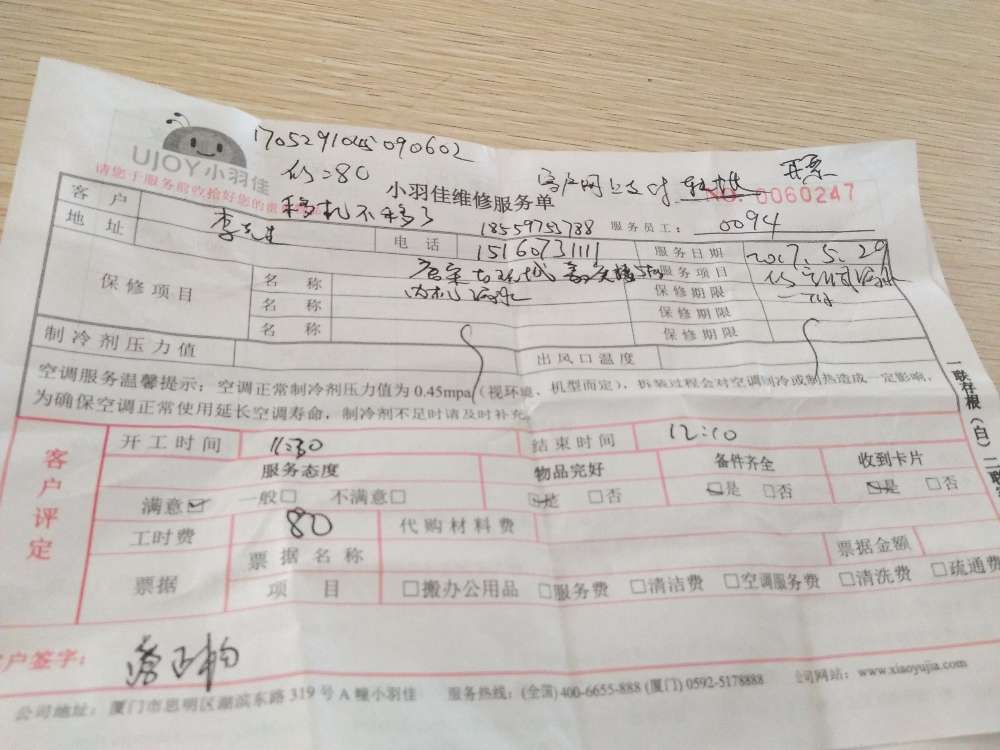 1705291045090602
UJOY小羽佳
80
请您于服务前收拾好您的贵
小羽佳维修服务单
客户网上支付
开票
NO. 0060247
客户
李先生
移机不移了
18559753788
服务员工：
0094
地址
电话
15160731111
服务日期
2017.5.29
保修项目
名称
服务项目
内机
保修期限
名称
保修期限
名称
保修期限
制冷剂压力值
出风口温度
空调服务温馨提示：空调正常制冷剂压力值为0.45mpa（视环境、机型而定），拆装过程会对空调制冷或制热造成一定影响，
为确保空调正常使用延长空调寿命，制冷剂不足时请及时补充。
一联存根（白）二联
客户评定
开工时间
11:30
结束时间
12:10
服务态度
物品完好
备件齐全
收到卡片
满意☑ 一般□ 不满意□
☑是 □否
☑是 □否
☑是 □否
工时费
80
代购材料费
票据
票据名称
票据金额
项目
□搬办公用品 □服务费 □清洁费 □空调服务费 □清洗费 □疏通费
客户签字：
公司地址：厦门市思明区湖滨东路319号A幢小羽佳 服务热线：(全国)400-6655-888 (厦门) 0592-5178888 公司网站：www.xiaoyujia.com